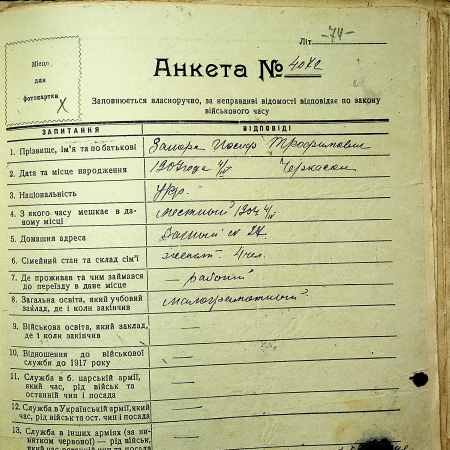 Літ. -74-
Місце
для
фотокартки
Анкета №
Заповнюється власноручно, за неправдиві відомості відповідає по закону
військового часу
ЗАПИТАННЯ ВІДПОВІДІ
1. Прізвище, ім'я та по батькові Иосиф Трофимович
2. Дата та місце народження 1907 года Черкассы
3. Національність Укр.
4. З якого часу мешкає в да-
ному місці местный
5. Домашня адреса
6. Сімейний стан та склад сім'ї женат. 4 чел.
7. Де проживав та чим займався
до переїзду в дане місце — рабочий
8. Загальна освіта, який учбовий
заклад, де і коли закінчив малограмотный
9. Військова освіта, який заклад,
де і коли закінчив —
10. Відношення до військової
служби до 1917 року —
11. Служба в б. царській армії,
який час, рід військ та
останній чин і посада —
12. Служба в Українській армії, який
час, рід військ та ост. чин і посад. —
13. Служба в інших арміях (за ви-
нятком червоної) — рід військ,
який час останній чин та посада